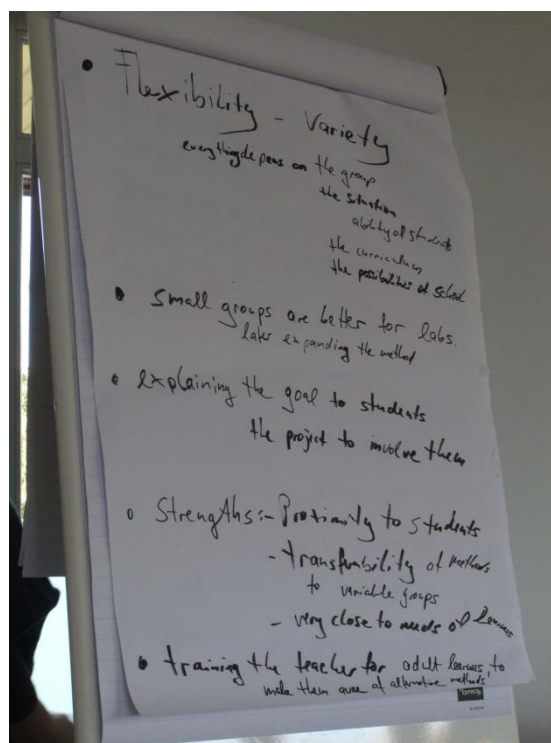 • Flexibility - Variety
everything depens on the group
the situation
ability of students
the curriculum
the possibilities of school
• small groups are better for labs.
later expanding the method
• explaining the goal to students
the project to involve them
• Strengths:- Proximity to students
- transfurability of methods
to variable groups
- very close to needs of learners
• training the teacher for adult learners, to
make them aware of alternative methods